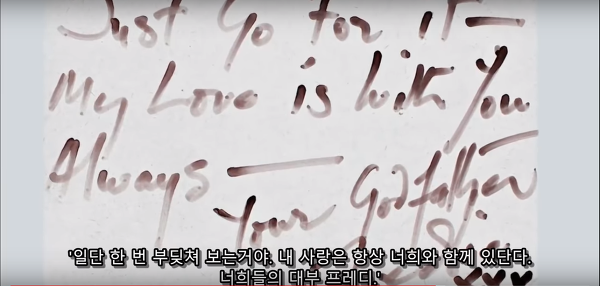 Just Go for it —
My Love is with You
Always —
Your Godfather
'일단 한 번 부딪쳐 보는거야. 내 사랑은 항상 너희와 함께 있단다.
너희들의 대부 프레디.'
xxx